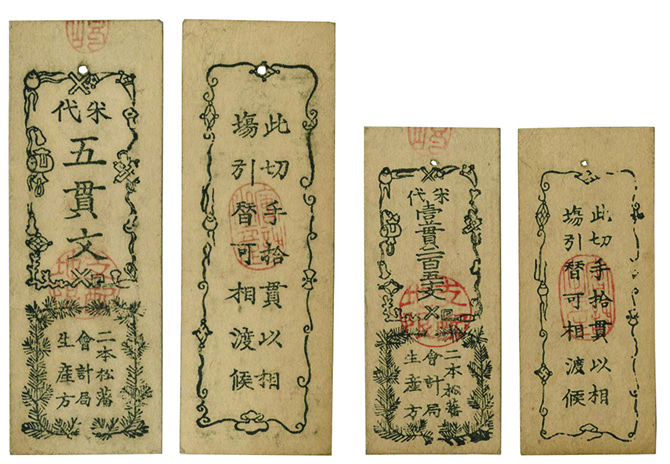 米代
五貫文
二本松藩
會計局
生産方
此切手拾貫以相
塲引替可相渡候
米代
壹貫二百五文
二本松藩
會計局
生産方
此切手拾貫以相
塲引替可相渡候